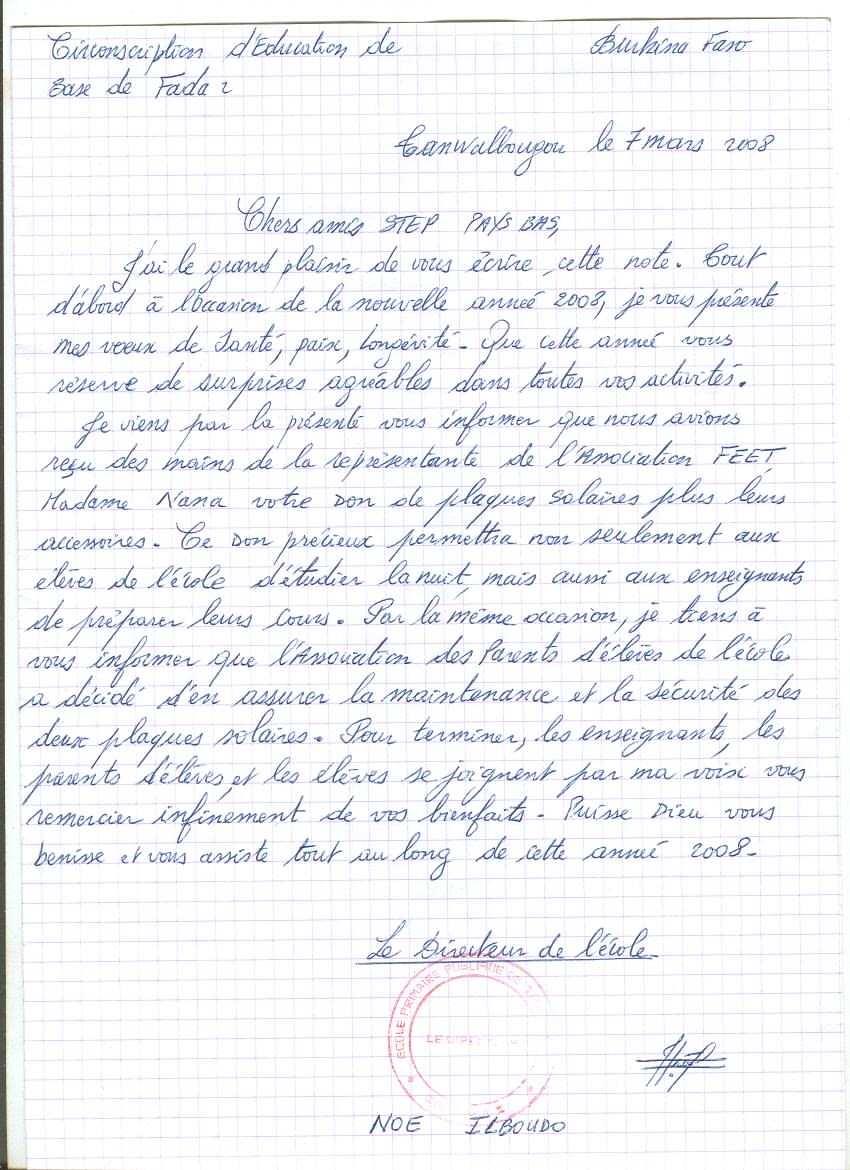 Circonscription d'Education de Burkina Faso
Base de Fada 2
Tanwalbougou le 7 mars 2008
Chers amis STEP PAYS BAS,
J'ai le grand plaisir de vous écrire cette note. Tout
d'abord à l'occasion de la nouvelle année 2008, je vous présente
mes vœux de Santé, paix, Longévité - Que cette année vous
réserve de surprises agréables dans toutes vos activités.
Je viens par la présente vous informer que nous avions
reçu des mains de la représentante de l'Association FEET,
Madame Nana votre Don de plaques solaires plus leurs
accessoires - Ce Don précieux permettra non seulement aux
élèves de l'école d'étudier la nuit, mais aussi aux enseignants
de préparer leurs cours. Par la même occasion, je tiens à
vous informer que l'Association des Parents d'élèves de l'école
a décidé d'en assurer la maintenance et la sécurité des
deux plaques solaires. Pour terminer, les enseignants, les
parents d'élèves, et les élèves se joignent par ma voix vous
remercier infiniment de vos bienfaits - Puisse Dieu vous
benisse et vous assiste tout au long de cette année 2008 -
Le Directeur de l'école
ECOLE PRIMAIRE PUBLIQUE DE
NOE ILBOUDO